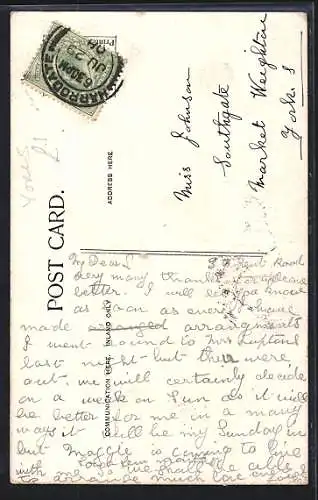 HARROGATE
6.30 PM
JU 23
POST CARD.
ADDRESS HERE
COMMUNICATION HERE. INLAND ONLY
Miss Johnson
Southgate
Market Weighton
Yorks
Yorks
£1
Kent Road
My Dear L
Very many thanks for
better. I will let you know
as soon as ever I have
made arranged arrangements
I went round to Mrs Luptons
last night but they were
out. we will certainly decide
on a week on Sun as it will
be better for me in a many
ways it will be my Sunday in
but Maggie is coming to live
with me so we shall be able
to arrange much